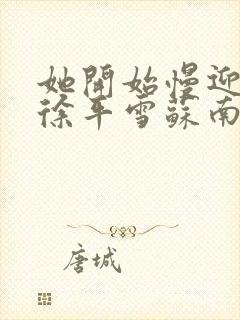 她開始慢迎
徐平雪蘇南
唐城